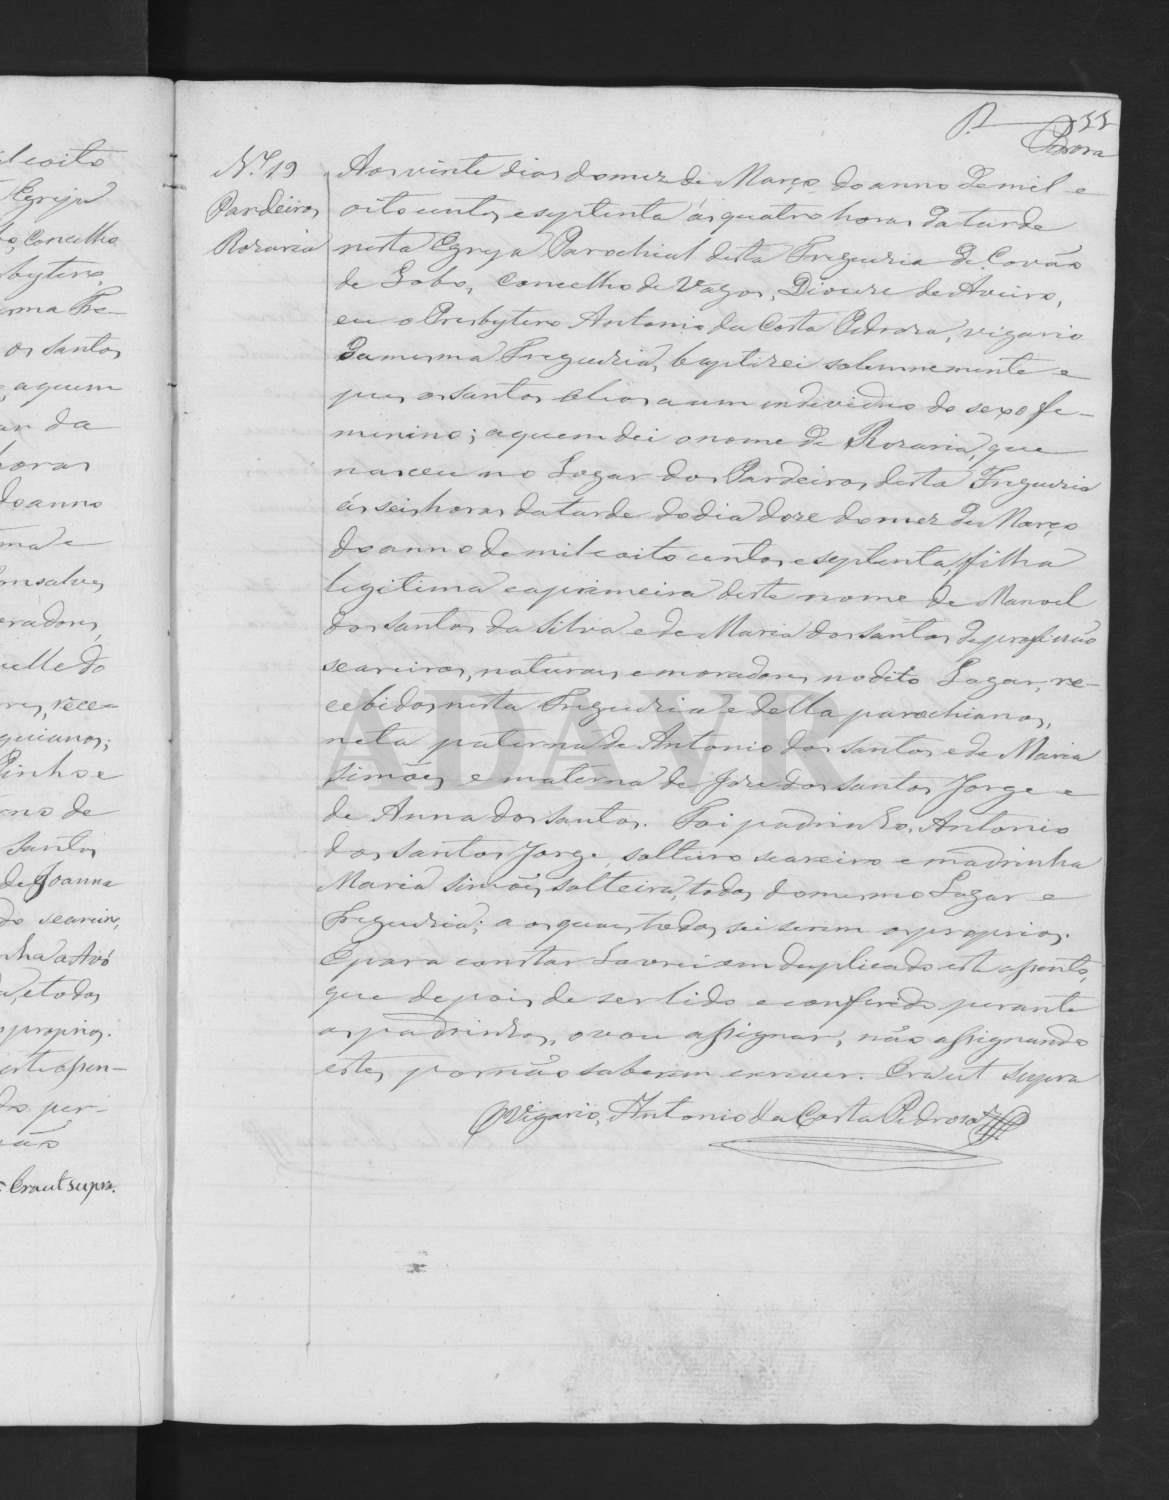 N.º 19
Pardeiros
Rozaria
Aos vinte dias do mez de Março do anno de mil e
oito centos e septenta ás quatro horas da tarde
nesta Egreja Parochial desta Freguezia de Covão
de Lobo, Concelho de Vagos, Diocese de Aveiro,
eu o Presbytero Antonio da Costa Pedroza, vigario
da mesma Freguezia, baptizei solemnemente e
puz os santos oleos a um individuo do sexo fe-
minino; a quem dei o nome de Rozaria, que
nasceu no Logar dos Pardeiros desta Freguezia
ás seis horas da tarde do dia doze do mez de Março
do anno de mil e oito centos e septenta, filha
legitima e a primeira deste nome de Manoel
dos Santos da Silva e de Maria dos Santos de profissão
seareiros, naturaes e moradores no dito Logar, re-
cebidos nesta Freguezia e della parochianos,
neta paterna de Antonio dos Santos e de Maria
Simões, e materna de Joze dos Santos Jorge e
de Anna dos Santos. Foi padrinho, Antonio
dos Santos Jorge, solteiro seareiro e madrinha
Maria Simões, solteira, todos do mesmo Logar e
Freguezia; a os quaes todos sei serem os proprios.
E para constar lavrei em duplicado este assento,
que depois de ser lido e conferido perante
os padrinhos, o vou assignar, não assignando
estes por não saberem escrever. Era ut supra
O Vigario, Antonio da Costa Pedroza
ADAVR
il e oito
Egreja
Concelho
sbytero,
esma Fre-
os santos
a quem
ar da
horas
do anno
ma e
onsalves
oradores
elle do
res, rece-
quianos;
Pinho e
erno de
Santos
de Joanna
do seareiro,
nha a Avó
a, e todos
proprios.
este assen-
do per-
não
Era ut supra.